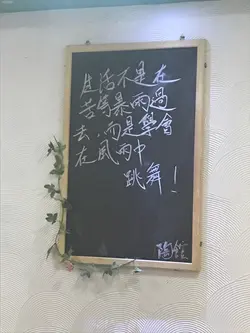 生活不是在
苦等暴雨過
去，而是學會
在風雨中
跳舞！
陶